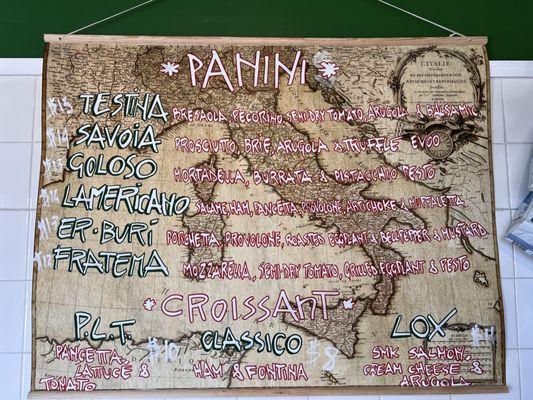 L'ITALIE
PANINI
$15 TESTINA BRESAOLA, PECORINO, SEMI-DRY TOMATO, ARUGOLA & BALSAMIC
$14 SAVOIA PROSCIUTTO, BRIE, ARUGOLA & TRUFFLE EVOO
$13 GOLOSO MORTADELLA, BURRATA & PISTACCHIO PESTO
$14 LAMERICANO SALAME, HAM, PANCETTA, PROVOLONE, ARTICHOKE & MUFFALETTA
$13 ER•BURI PORCHETTA, PROVOLONE, ROASTED EGGPLANT & BELLPEPPER & MUSTARD
$12 FRATEMA MOZZARELLA, SEMI-DRY TOMATO, GRILLED EGGPLANT & PESTO
CROISSANT
P.L.T. CLASSICO LOX
PANCETTA, LATTUCE & TOMATO $10
HAM & FONTINA $8
SMK SALMON, CREAM CHEESE & ARUGOLA